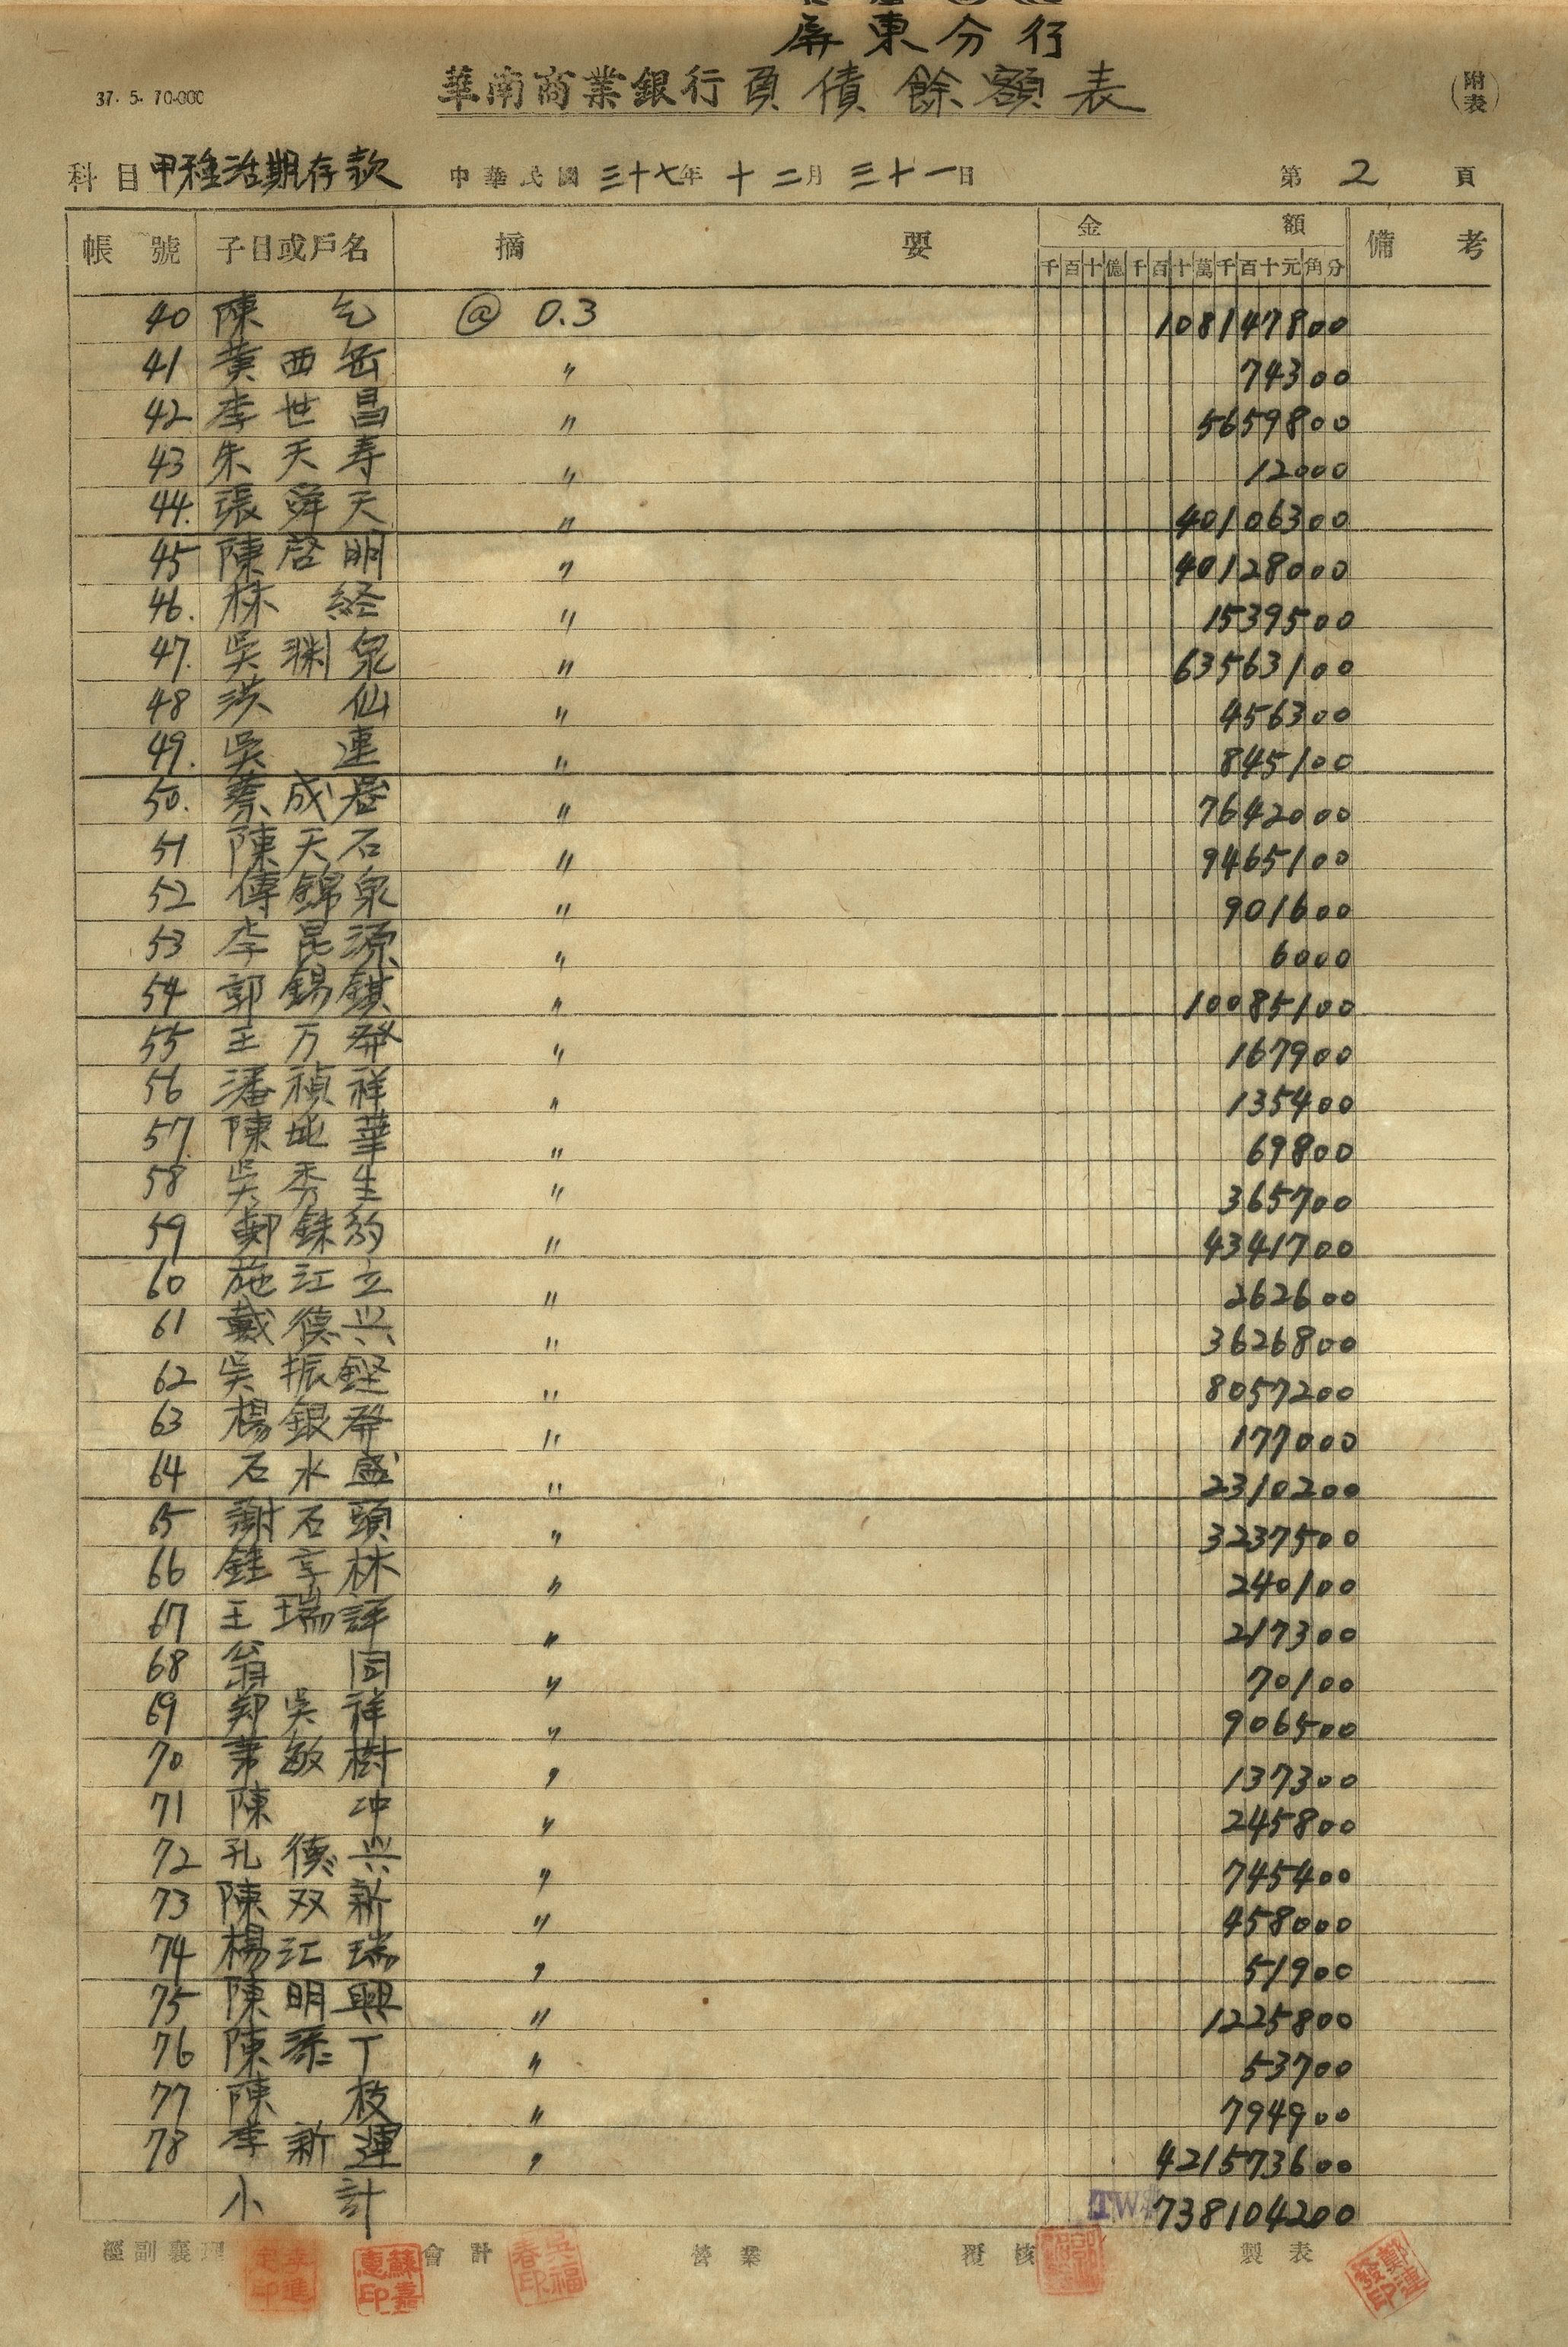 屏東分行
37. 5. 70.000 華南商業銀行負債餘額表 (附表)
科目 甲種活期存款 中華民國 三十七年 十二月 三十一日 第 2 頁
帳號 子目或戶名 摘要 金額 備考
千百十億千百十萬千百十元角分
40 陳 乞 @ 0.3 108147800
41 黃西岳 〃 74300
42 李世昌 〃 5659800
43 朱天寿 〃 12000
44. 張舜天 〃 40106300
45 陳啓明 〃 40128000
46. 林 経 〃 1539500
47. 吳渊泉 〃 63563100
48 洪 仙 〃 456300
49. 吳 連 〃 845100
50. 蔡成 〃 7642000
51 陳天石 〃 9465100
52 傳錦泉 〃 901600
53 李昆源 〃 6000
54 郭錫錤 〃 10085100
55 王万発 〃 167900
56 潘禎祥 〃 135400
57. 陳地華 〃 69800
58 吳秀生 〃 365700
59 鄭銖 〃 4341700
60 施江立 〃 262600
61 戴德兴 〃 3626800
62 吳振鏗 〃 8057200
63 楊銀発 〃 177000
64 石水盛 〃 2310200
65 謝石頭 〃 3237500
66 林 〃 240100
67 王瑞 〃 217300
68 翁 同 〃 70100
69 鄭吳祥 〃 906500
70 敏樹 〃 137300
71 陳 冲 〃 245800
72 孔德兴 〃 745400
73 陳双新 〃 458000
74 楊江瑞 〃 51900
75 陳明興 〃 1225800
76 陳添丁 〃 53700
77 陳 枝 〃 794900
78 李新運 〃 421573600
小計 738104200
經副襄理 會計 營業 覆核 製表
蘇嘉惠印 吳福春印 鄭連發印